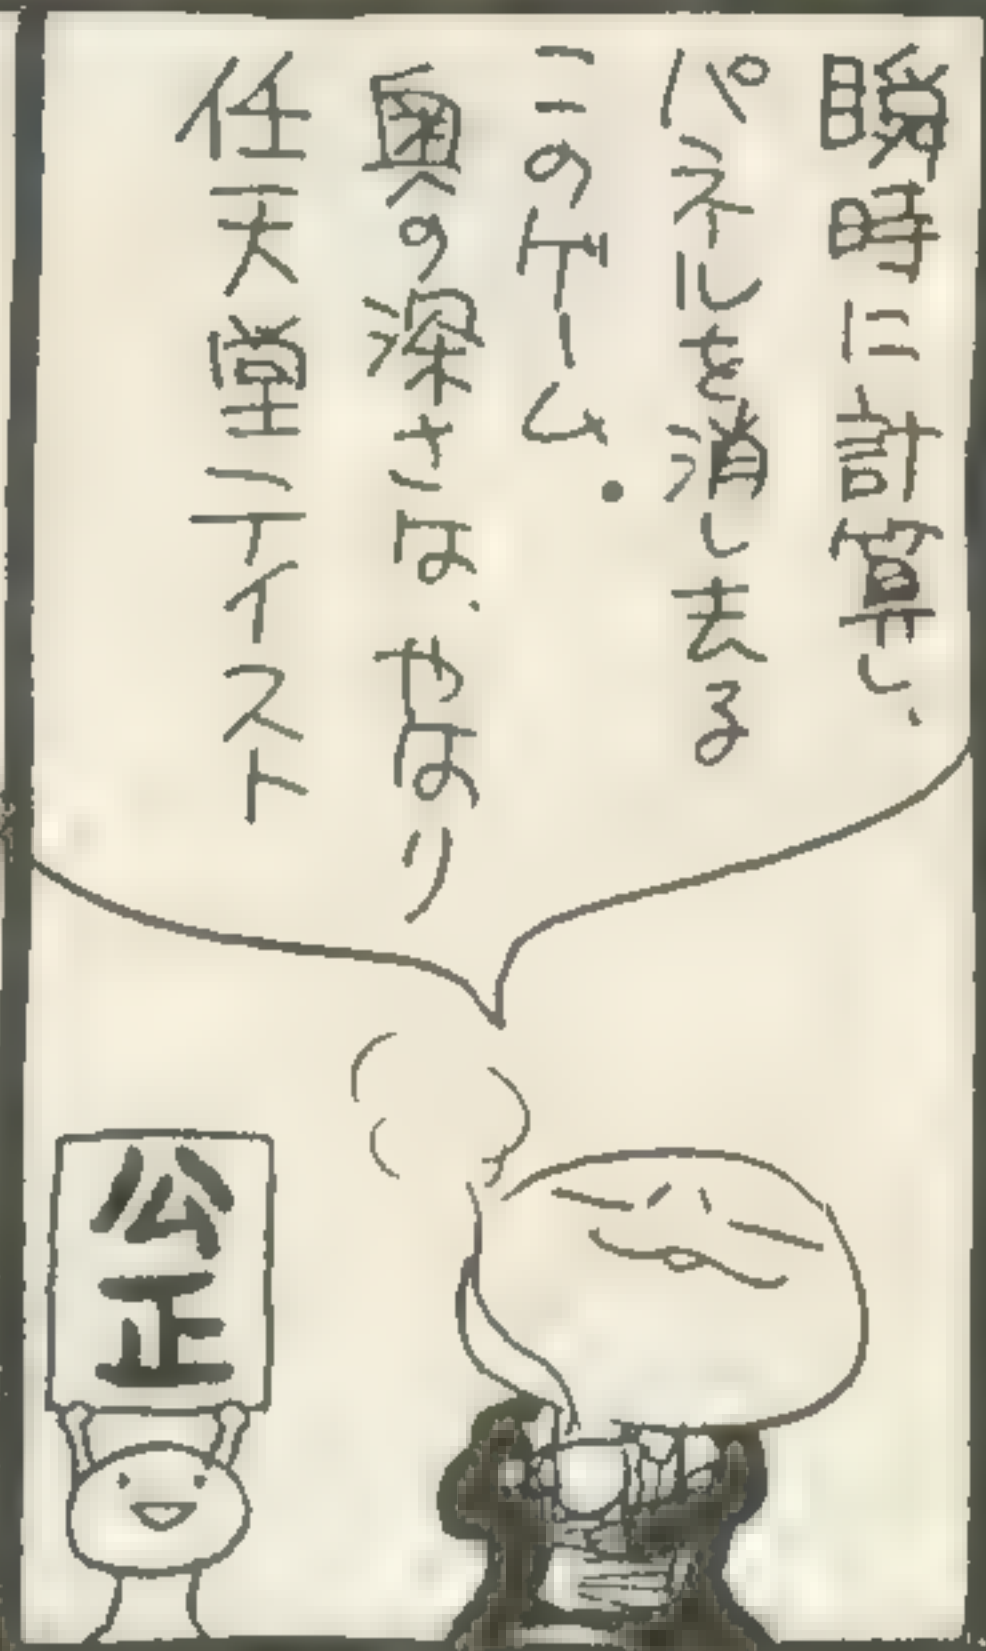 瞬時に計算し、
パネルを消し去る
このゲーム。
奥への深さは、やはり
任天堂ーテイスト
公正